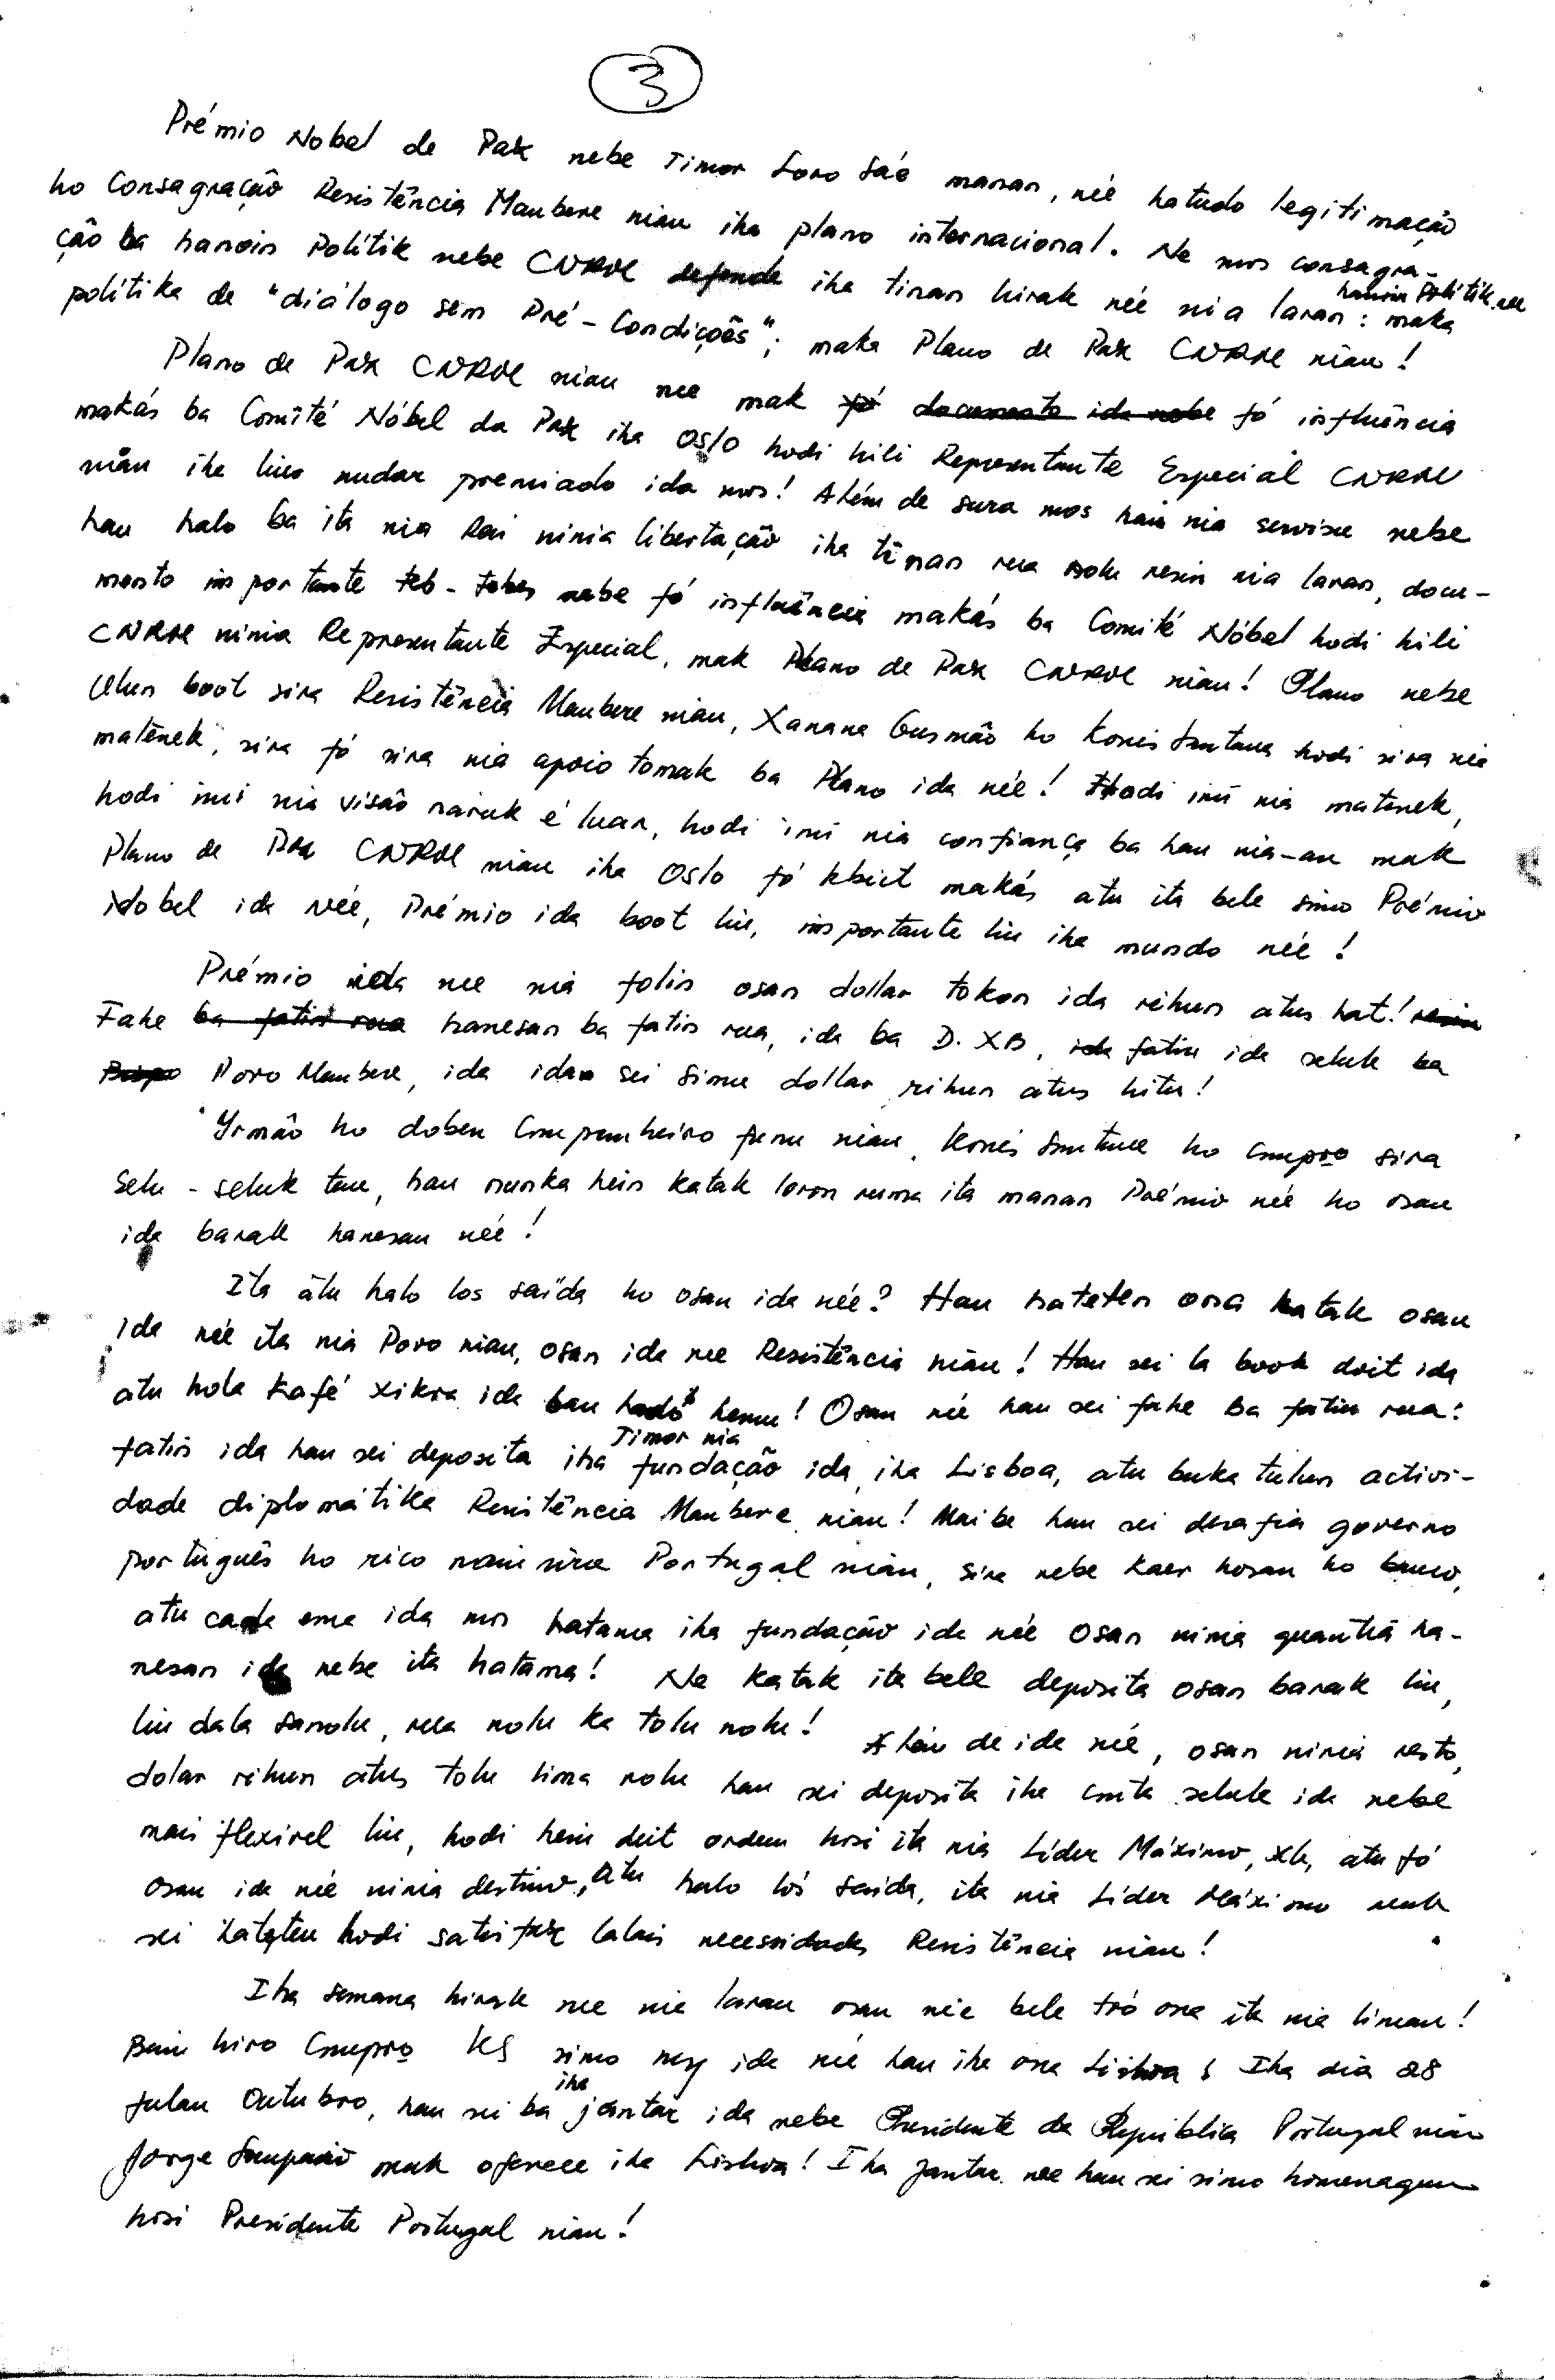 3
Prémio Nobel de Pax nebe Timor Loro Sáe manan, née hatudo legitimação
ho Consagração Resistência Maubere nian iha plano internacional. Ne mos consagra-
ção ba hanoin Politik nebe CNRM defende iha tinan hirak née nia laran: maka hanoin Politik nee
politika de "diálogo sem Pré-Condições"; maka Plano de Pax CNRM nian!
Plano de Pax CNRM nian nee mak fó documento ida nebe fó influência
makás ba Comité Nóbel da Pax iha Oslo hodi hili Representante Especial CNRM
nian iha liur nudar premiado ida mos! Além de sura mos hau nia servisu nebe
hau halo ba ita nia Rai ninia libertação iha tinan rua nolu resin nia laran, docu-
mento importante teb-tebes nebe fó influência makás ba Comité Nóbel hodi hili
CNRM ninia Representante Especial, mak Plano de Pax CNRM nian! Plano nebe
Ulun boot sira Resistência Maubere nian, Xanana Gusmão ho Konis Santana hodi sira nia
matenek, sira fó sira nia apoio tomak ba Plano ida née! Hodi imi nia matenek,
hodi imi nia visão naruk é luan, hodi imi nia confiança ba hau nia-an mak
Plano de Pax CNRM nian iha Oslo fó kbiit makás atu ita bele simo Prémio
Nobel ida née, Prémio ida boot liu, importante liu iha mundo née!
Prémio ida nee nia folin osan dollar tokon ida rihun atus hat! resin
Fahe ba fatin rua hanesan ba fatin rua, ida ba D. XB, ida fatin ida seluk ba
Bispo Povo Maubere, ida idan sei simu dollar rihun atus hitu!
Yrmão ho doben Companheiro funu nian, Konis Santana ho Compro sira
Selu-seluk tan, hau nunka hein katak loron ruma ita manan Prémio née ho osan
ida barak hanesan née!
Ita atu halo los saída ho osan ida née? Hau hateten ona katak osan
ida née ita nia Povo nian, osan ida nee Resistência nian! Hau sei la book doit ida
atu hola kafé xikra ida hau hemu! Osan née hau sei fahe ba fatin rua:
fatin ida hau sei deposita iha Timor nia fundação ida, iha Lisboa, atu buka tulun activi-
dade diplomátika Resistência Maubere nian! Maibe hau sei desafia governo
português ho rico nain sira Portugal nian, sira nebe kaer hosan ho banco,
atu cada ema ida mos hatama iha fundação ida née osan ninia quantia ha-
nesan ida nebe ita hatama! Ne katak ita bele deposita osan barak liu,
liu dala sanolu, rua nolu ka tolu nolu! Além de ida née, osan ninia resto,
dolar rihun atus tolu lima nolu hau sei deposita iha conta seluk ida nebe
mais flexivel liu, hodi hein deit ordem hosi ita nia Líder Máximo, XG, atu fó
osan ida née ninia destino, atu halo lós saida, ita nia Líder Máximo mak
sei hateten hodi satisfax lalais necessidades Resistência nian!
Iha semana hirak nee nia laran osan née bele tró ona ita nia liman!
Bain hiro Compro KS simo msg ida née hau iha ona Lisboa! Iha dia 28
fulan Outubro, hau sei ba iha jantar ida nebe Presidente da República Portugal nian
Jorge Sampaio mak oferece iha Lisboa! Iha jantar nee hau sei simo homenagem
hosi Presidente Portugal nian!